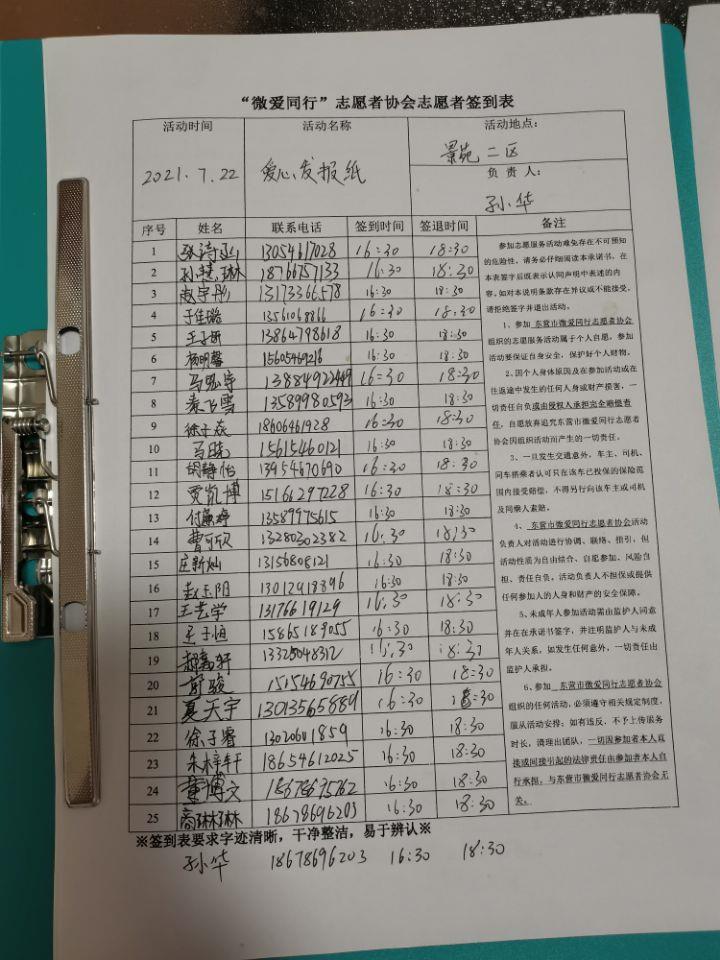 “微爱同行”志愿者协会志愿者签到表
活动时间 活动名称 活动地点：
2021.7.22 爱心发报纸 景苑二区
负责人：
孙华
序号 姓名 联系电话 签到时间 签退时间 备注
1 张诗涵 13054617028 16:30 18:30
2 孙慧琳 18766757133 16:30 18:30
3 赵宇彤 13173366578 16:30 18:30
4 于佳璐 13561068866 16:30 18:30
5 王子妍 13864798618 16:30 18:30
6 杨明馨 15605469216 16:30 18:30
7 马 宇 13884922449 16:30 18:30
8 秦飞雪 13589980593 16:30 18:30
9 徐子焱 18606461928 16:30 18:30
10 马晓 15615460121 16:30 18:30
11 胡静怡 13954670690 16:30 18:30
12 贾凯博 15166297228 16:30 18:30
13 付 13589975615 16:30 18:30
14 曹可欣 13280302382 16:30 18:30
15 庄新灿 13156808121 16:30 18:30
16 赵 阳 13012918896 16:30 18:30
17 王艺学 13176619129 16:30 18:30
18 王子恒 15865189055 16:30 18:30
19 郝 轩 13325048312 16:30 18:30
20 骏 15154690755 16:30 18:30
21 夏天宇 13013565889 16:30 18:30
22 徐子睿 13020601859 16:30 18:30
23 朱梓轩 18654612025 16:30 18:30
24 董博文 18678675762 16:30 18:30
25 商琳琳 18678696203 16:30 18:30
参加志愿服务活动难免存在不可预知
的危险性，请务必仔细阅读本承诺书，在
本表签字后既表示认同声明中表述的内
容。如对本说明条款存在异议或不能接受，
请拒绝签字并退出活动。
1、参加 东营市微爱同行志愿者协会
组织的志愿服务活动属于个人自愿，参加
活动要保证自身安全，保护好个人财物。
2、因个人身体原因及在参加活动或在
往返途中发生的任何人身或财产损害，一
切责任自负或由侵权人承担完全赔偿责
任，自愿放弃追究东营市微爱同行志愿者
协会因组织活动而产生的一切责任。
3、一旦发生交通意外，车主、司机、
同车搭乘者认可只在该车已投保的保险范
围内接受赔偿，不得另行向该车主或司机
及同乘人索赔。
4、东营市微爱同行志愿者协会活动
负责人对活动进行协调、联络、指引，但
活动性质为自由结合、自愿参加、风险自
担、责任自负，活动负责人不担保或提供
任何参加人的人身和财产的安全保障。
5、未成年人参加活动需由监护人同意
并在在承诺书签字，并注明监护人与未成
年人关系，如发生任何意外，一切责任由
监护人承担。
6、参加 东营市微爱同行志愿者协会
组织的任何活动，必须遵守相关规定制度，
服从活动安排；如有违反，不予上传服务
时长，清理出团队，一切因参加者本人直
接或间接引起的法律责任由参加者本人自
行承担，与东营市微爱同行志愿者协会无
关。
※签到表要求字迹清晰，干净整洁，易于辨认※
孙华 18678696203 16:30 18:30